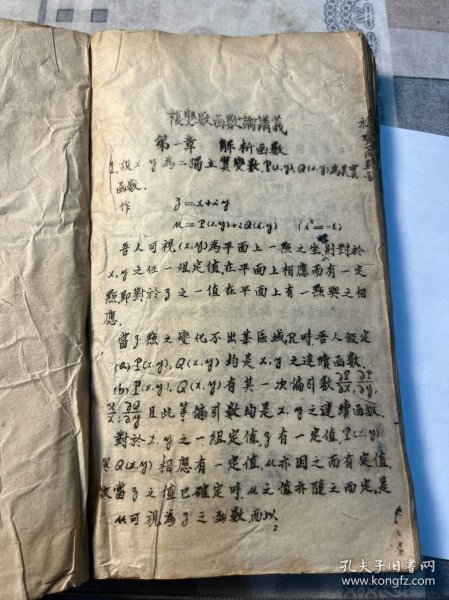 複變數函數論講義
第一章 解析函數
1. 設x,y為二獨立實變數,P(x,y),Q(x,y)為其實
函數.
作 z=x+iy
u=P(x,y)+iQ(x,y) (i²=-1)
吾人可視(x,y)為平面上一點之坐標,則對於
x,y之任一組定值,在平面上相應而有一定
點,即對於z之一值在平面上有一點與之相
應.
當z點之變化不出某區域R時吾人假定
(a) P(x,y), Q(x,y) 均是x,y之連續函數.
(b) P(x,y), Q(x,y)有其一次偏引數∂P/∂x, ∂P/∂y,
∂Q/∂x, ∂Q/∂y 且此等偏引數均是x,y之連續函數.
對於x,y之一組定值,z有一定值,P(x,y)
與Q(x,y)相應有一定值,u亦因之而有定值.
故當z之值已確定時,u之值亦隨之而定,是
u可視為z之函數,而以
孔夫子旧书网
book.kongfz.com